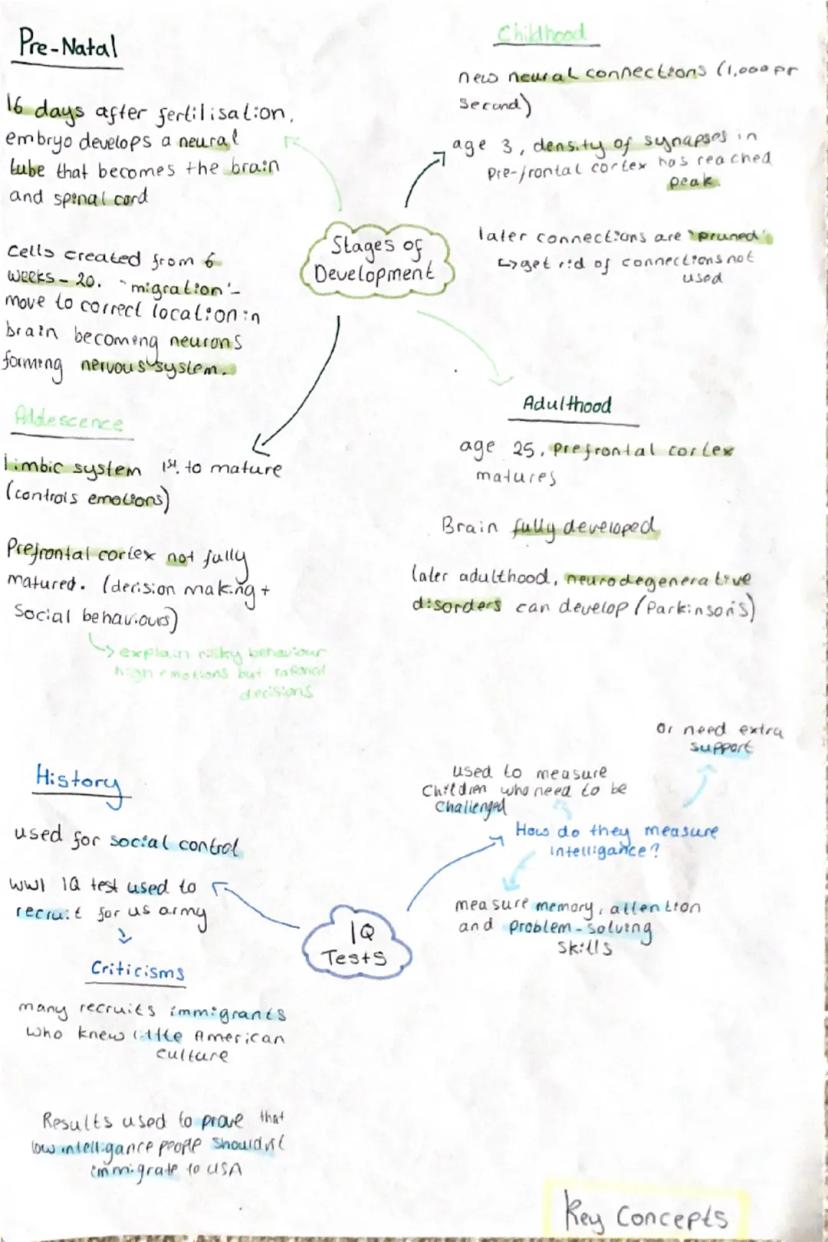 Pre-Natal
16 days after fertilisation,
embryo develops a neural
tube that becomes the brain
and spinal cord
Cells created from 6
weeks - 20. "migration" -
move to correct location in
brain becoming neurons
forming nervous system.
Childhood
new neural connections (1,000 pr
second)
age 3, density of synapses in
Pre-frontal cortex has reached
peak.
later connections are "pruned"
↳ get rid of connections not
used
Stages of
Development
Adolescence
limbic system 1st to mature
(controls emotions)
Prefrontal cortex not fully
matured. (decision making +
Social behaviours)
↳ explain risky behaviour
high emotions but rational
decisions
Adulthood
age 25, prefrontal cortex
matures
Brain fully developed
later adulthood, neurodegenerative
disorders can develop (Parkinsons)
History
used for social control
WW1 IQ test used to
recruit for us army
Criticisms
many recruits immigrants
who knew little American
culture
Results used to prove that
low intelligance people shouldn't
immigrate to USA
IQ
Tests
How do they measure
intelligance?
used to measure
Children who need to be
challenged
Or need extra
support
measure memory, attention
and problem-solving
skills
Key Concepts